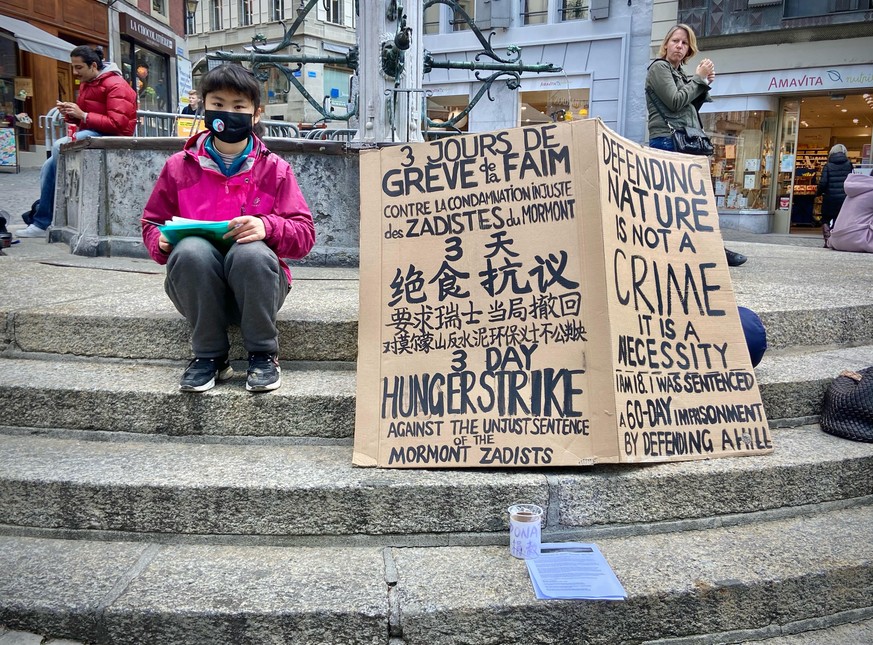 LA CHOCOLATIÈRE
AMAVITA
3 JOURS DE
GRÈVE de la FAIM
CONTRE LA CONDAMNATION INJUSTE
des ZADISTES du MORMONT
3 天
绝食 抗议
要求瑞士当局撤回
对莫尔蒙山反水泥环保义士不公判决
3 DAY
HUNGERSTRIKE
AGAINST THE UNJUST SENTENCE
OF THE
MORMONT ZADISTS
DEFENDING
NATURE
IS NOT A
CRIME
IT IS A
NECESSITY
I AM 18. I WAS SENTENCED
A 60-DAY IMPRISONMENT
BY DEFENDING A HILL
捐款